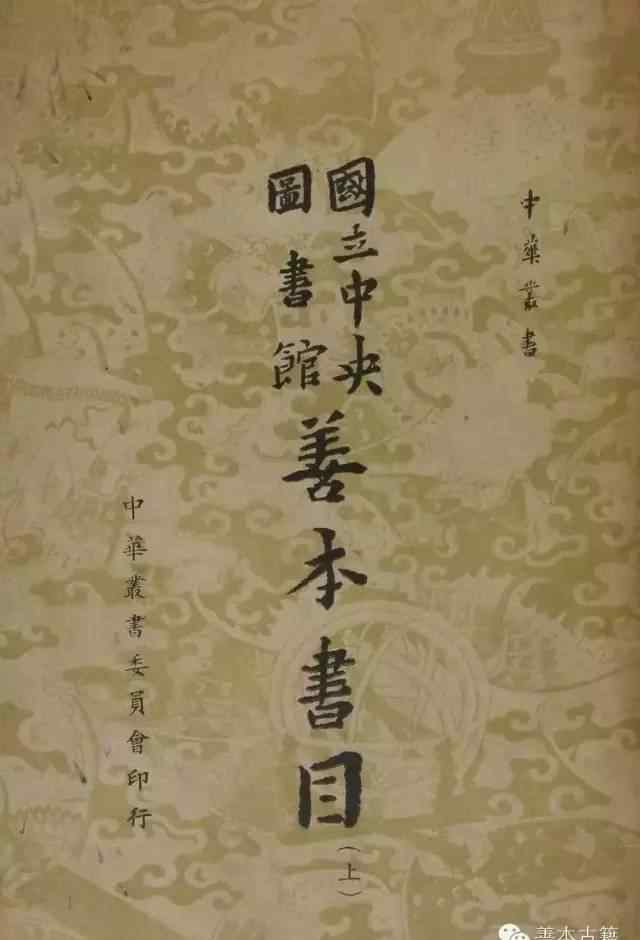 中華叢書
國立中央
圖書館
善本書目
(上)
中華叢書委員會印行
善本古籍